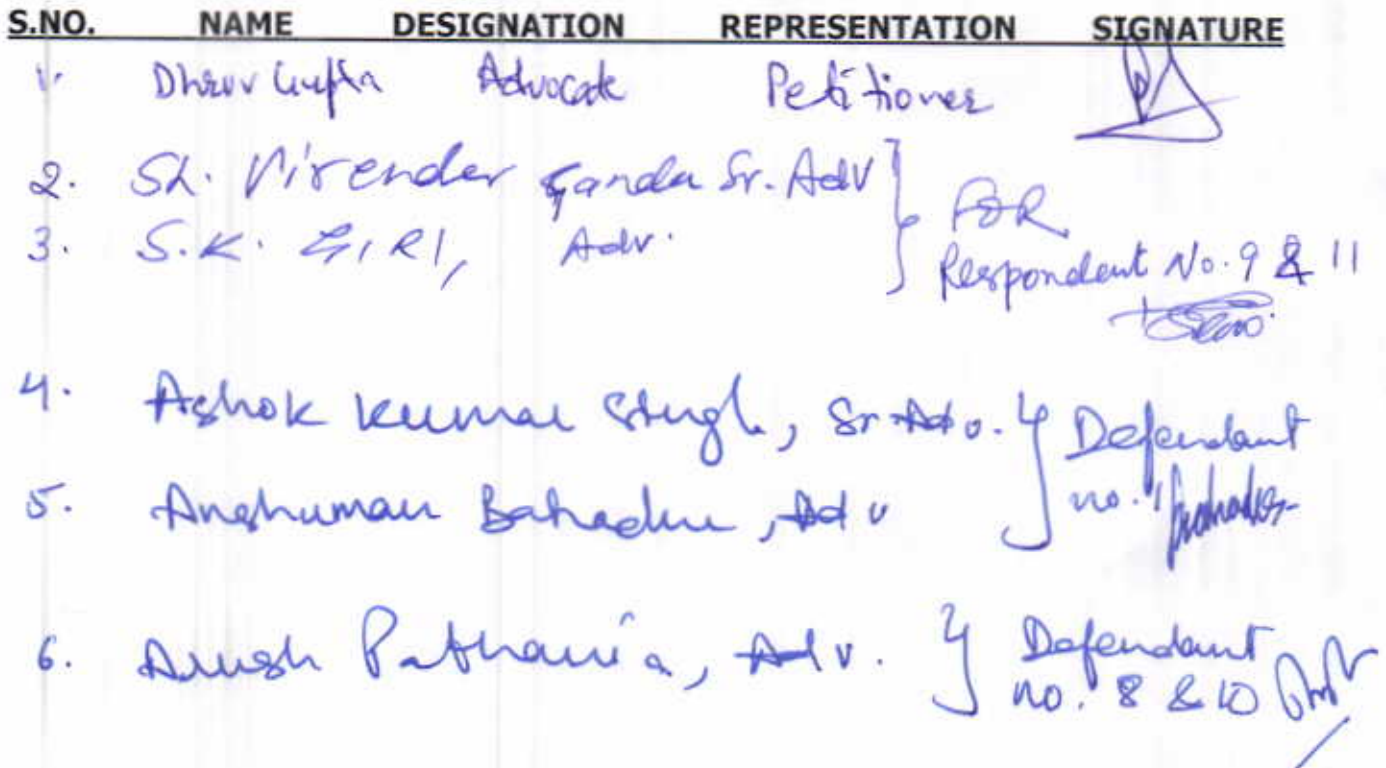 S.NO. NAME DESIGNATION REPRESENTATION SIGNATURE
1. Dhruv Gupta Advocate Petitioner
2. Sh. Virender Ganda Sr. Adv
3. S.K. GIRI, Adv. } FOR
Respondent No. 9 & 11
4. Ashok Kumar Singh, Sr. Adv. } Defendant
5. Anshuman Bahadur, Adv no. 1
6. Pathania, Adv. } Defendant
no. 8 & 10